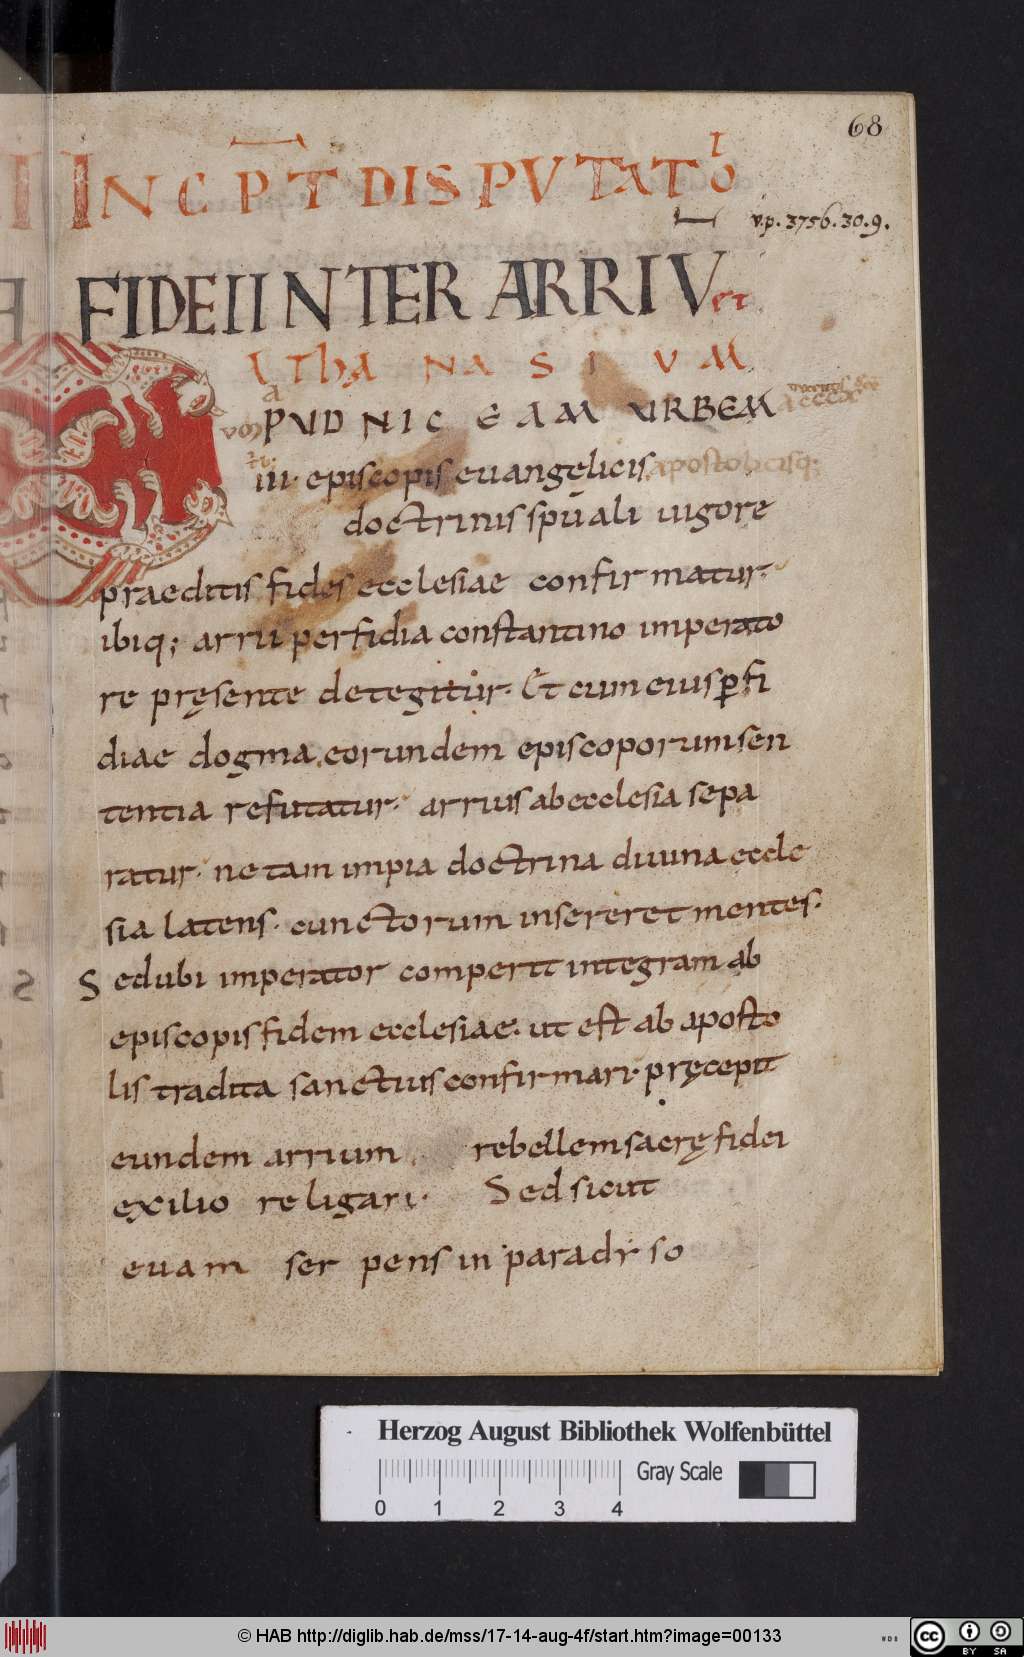 68
INCPT DISPUTATIO
v.p. 3756. 30. 9.
FIDEI INTER ARRIV et
AThANASIUM
PUD NICEAM URBEM
episcopis euangęlicis apostolicisq;
doctrinis spuali uigore
praeditis fides ecclesiae confirmatur.
ibiq; arrii perfidia constantino imperato
re pręsente detegitur. Et cum eius ꝑfi
diae dogma eorundem episcoporum sen
tentia refutatur. arrius ab ecclesia sepa
ratur. ne tam impia doctrina diuina eccle
sia latens. cunctorum insereret mentes.
Sed ubi imperator comperit integram ab
episcopis fidem ecclesiae. ut est ab aposto
lis tradita sanctius confirmari. pręcepit
eundem arrium rebellem sacrę fidei
exilio religari. Sed sicut
euam serpens in paradiso
Herzog August Bibliothek Wolfenbüttel
Gray Scale
0 1 2 3 4
© HAB http://diglib.hab.de/mss/17-14-aug-4f/start.htm?image=00133
cc BY SA